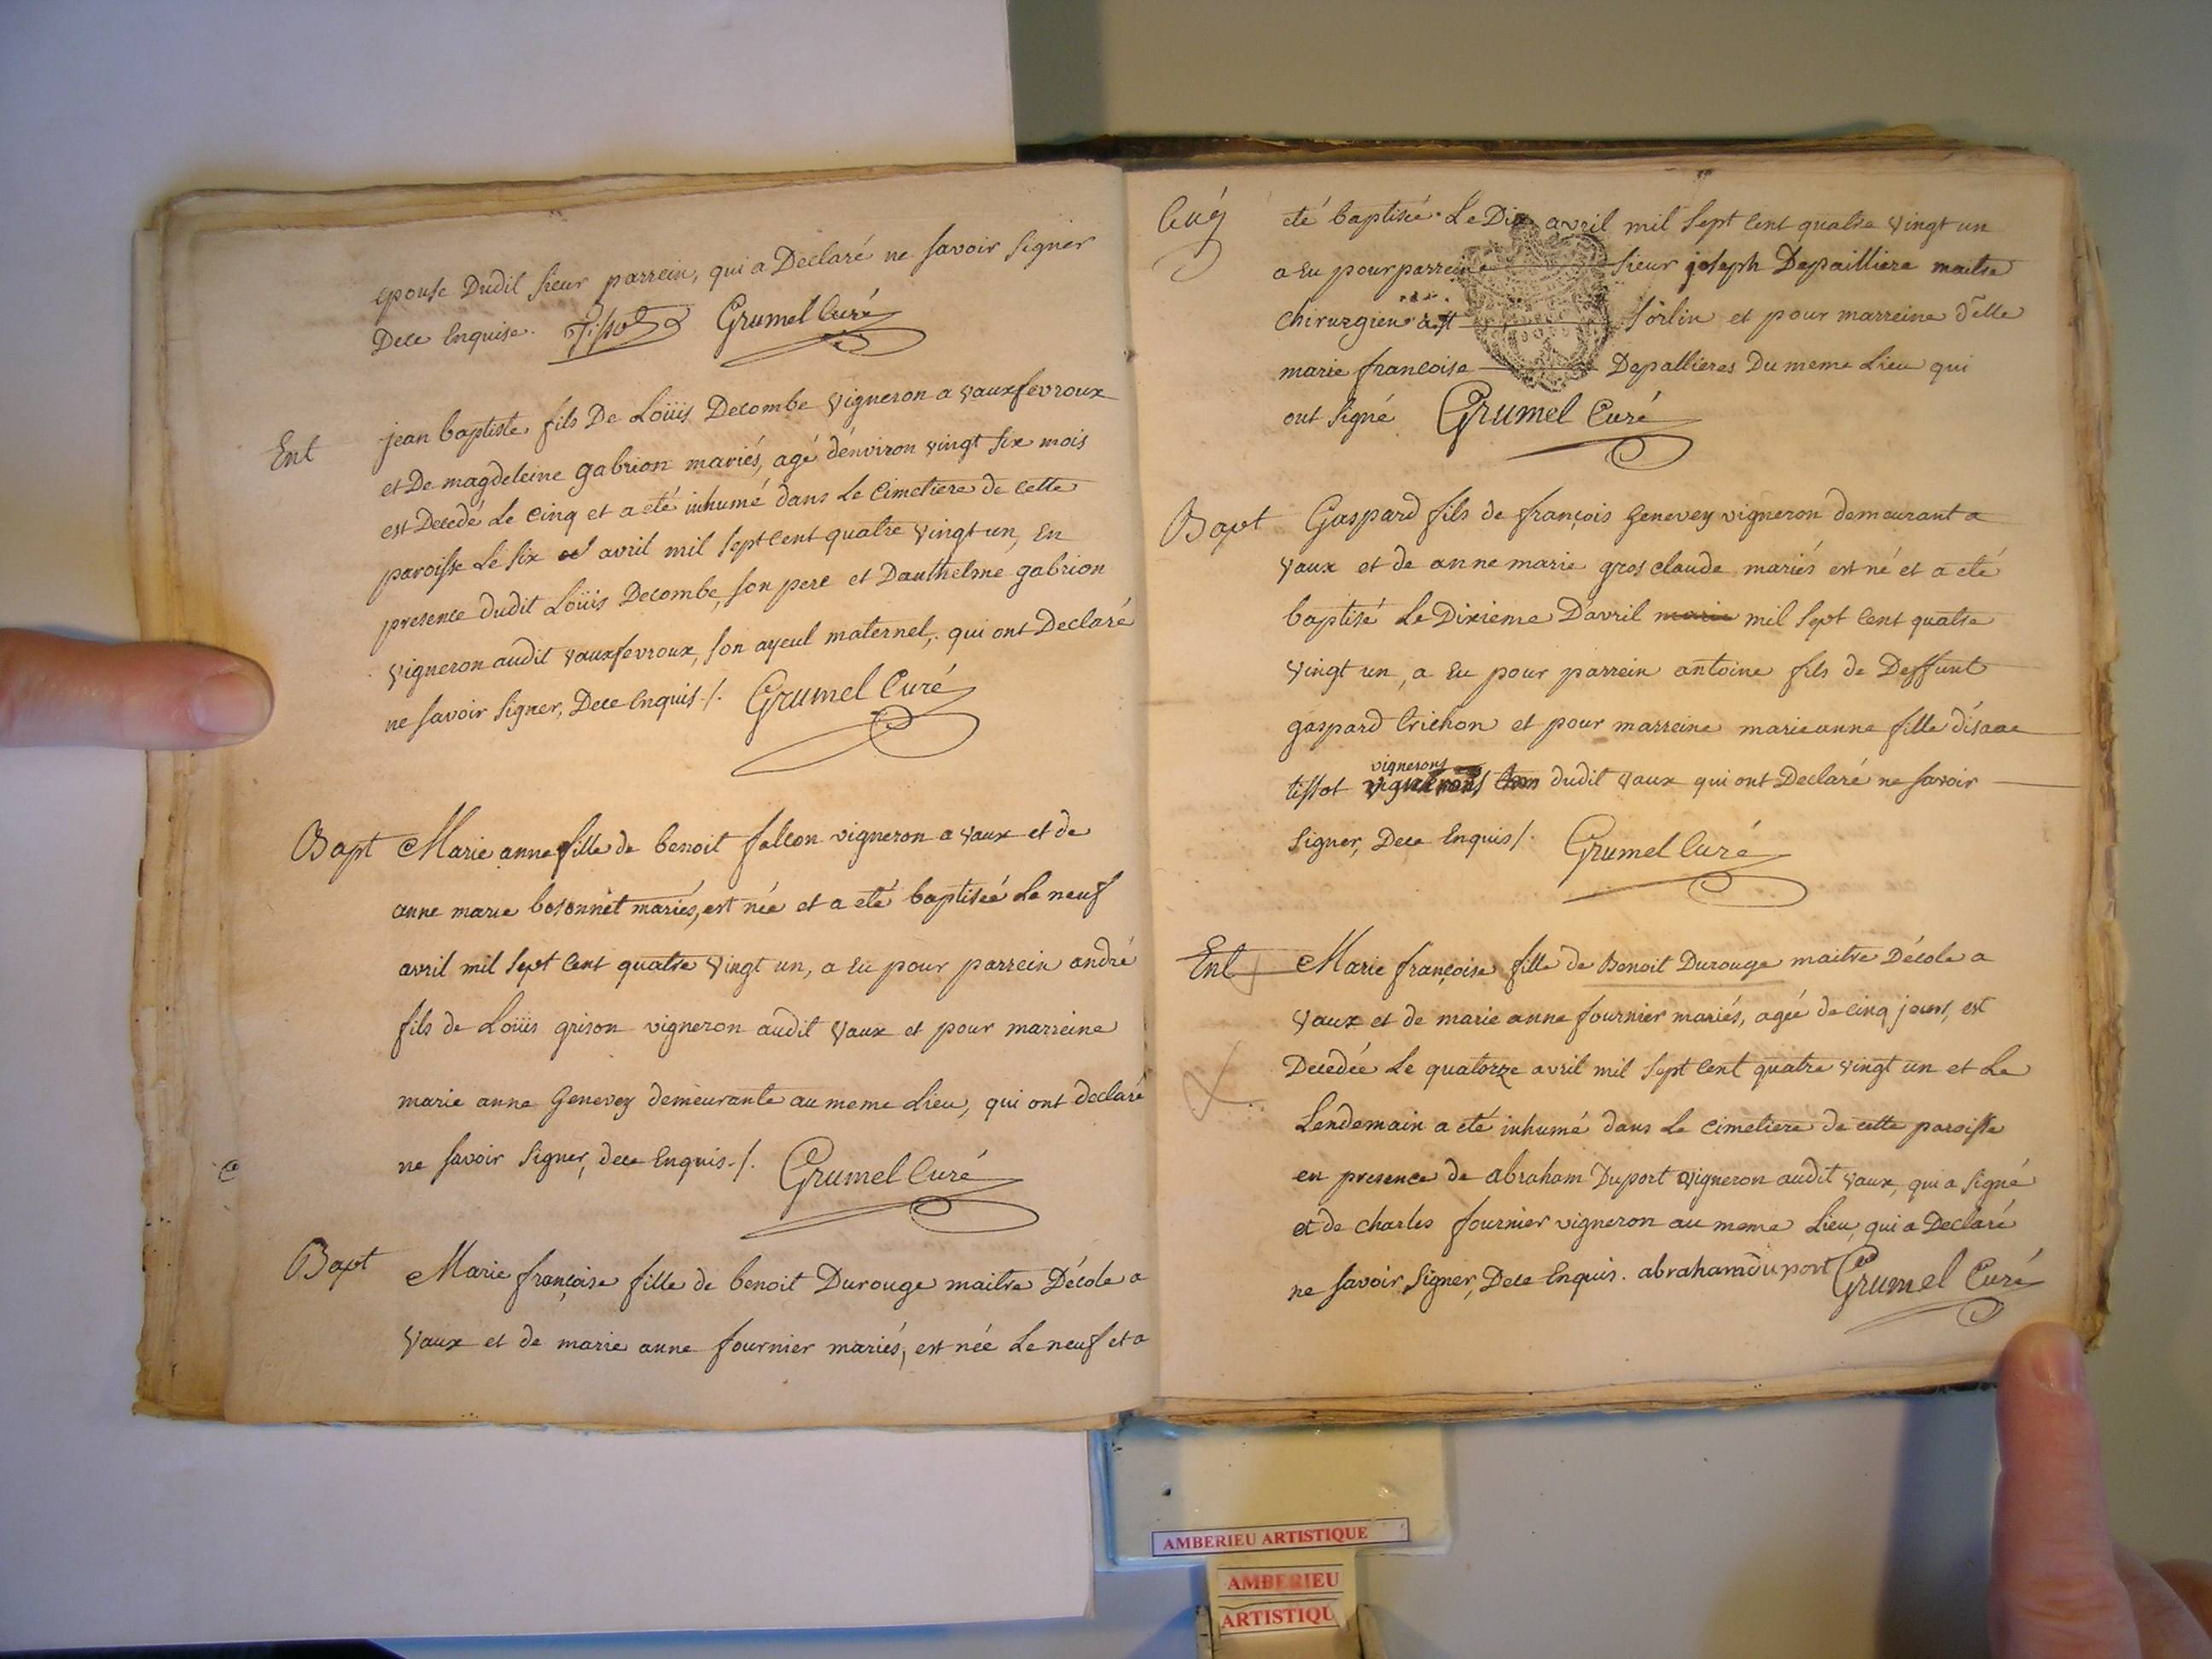 epouse Dudit sieur parrein, qui a Declaré ne savoir signer
Dece Enquise. Tissot Grumel Curé
Ent
jean baptiste fils De Loüis Decombe vigneron a vauxfevroux
et De magdeleine gabrion mariés, agé d'environ vingt six mois
est Decedé Le cinq et a eté inhumé dans Le Cimetiere de cette
paroisse Le six avril mil sept cent quatre vingt un, En
presence dudit Loüis Decombe, son pere et Danthelme gabrion
vigneron audit vauxfevroux, son ayeul maternel, qui ont Declaré
ne savoir signer, Dece Enquis./. Grumel Curé
Bapt
Marie anne fille de benoit falcon vigneron a vaux et de
anne marie bosonnet mariés, est née et a eté baptiseé Le neuf
avril mil sept Cent quatre vingt un, a Eu pour parrein andré
fils de Loüis grison vigneron audit vaux et pour marreine
marie anne Genevey demeurante au meme Lieu, qui ont declaré
ne savoir signer, dece Enquis./. Grumel Curé
Bapt
Marie françoise fille de benoit Durouge maitre D'école a
vaux et de marie anne fournier mariés, est née Le neuf et a
eté baptisée Le Dix avril mil sept Cent quatre vingt un
a Eu pour parrein sieur joseph Depailliere maitre
Chirurgien a st sorlin et pour marreine dелle
marie francoise Depallieres Du meme Lieu qui
ont signé Grumel Curé
Bapt
Gaspard fils de françois Genevey vigneron demeurant a
vaux et de anne marie gros claude mariés est né et a eté
baptisé Le Dixieme D'avril marie mil sept Cent quatre
vingt un, a Eu pour parrein antoine fils de Deffunt
gaspard Crichon et pour marreine marieanne fille d'isaac
vignerons
tissot vignerons dudit vaux qui ont Declaré ne savoir
signer, Dece Enquis/. Grumel Curé
Ent
Marie françoise fille de Benoit Durouge maitre D'école a
vaux et de marie anne fournier mariés, agée de cinq jours, est
Decedée Le quatorze avril mil sept Cent quatre vingt un et Le
Lendemain a eté inhumé dans Le Cimetiere de cette paroisse
en presence de abraham Duport vigneron audit vaux, qui a signé
et de charles fournier vigneron au meme Lieu, qui a Declaré
ne savoir signer, Dece Enquis. abraham duport Grumel Curé
AMBERIEU ARTISTIQUE
AMBERIEU
ARTISTIQU